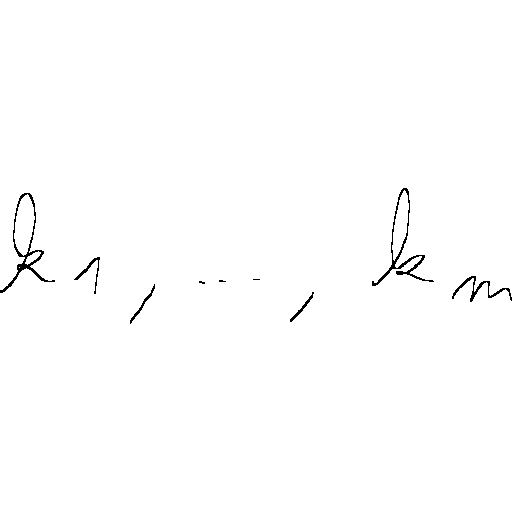 k₁, ..., kₘ